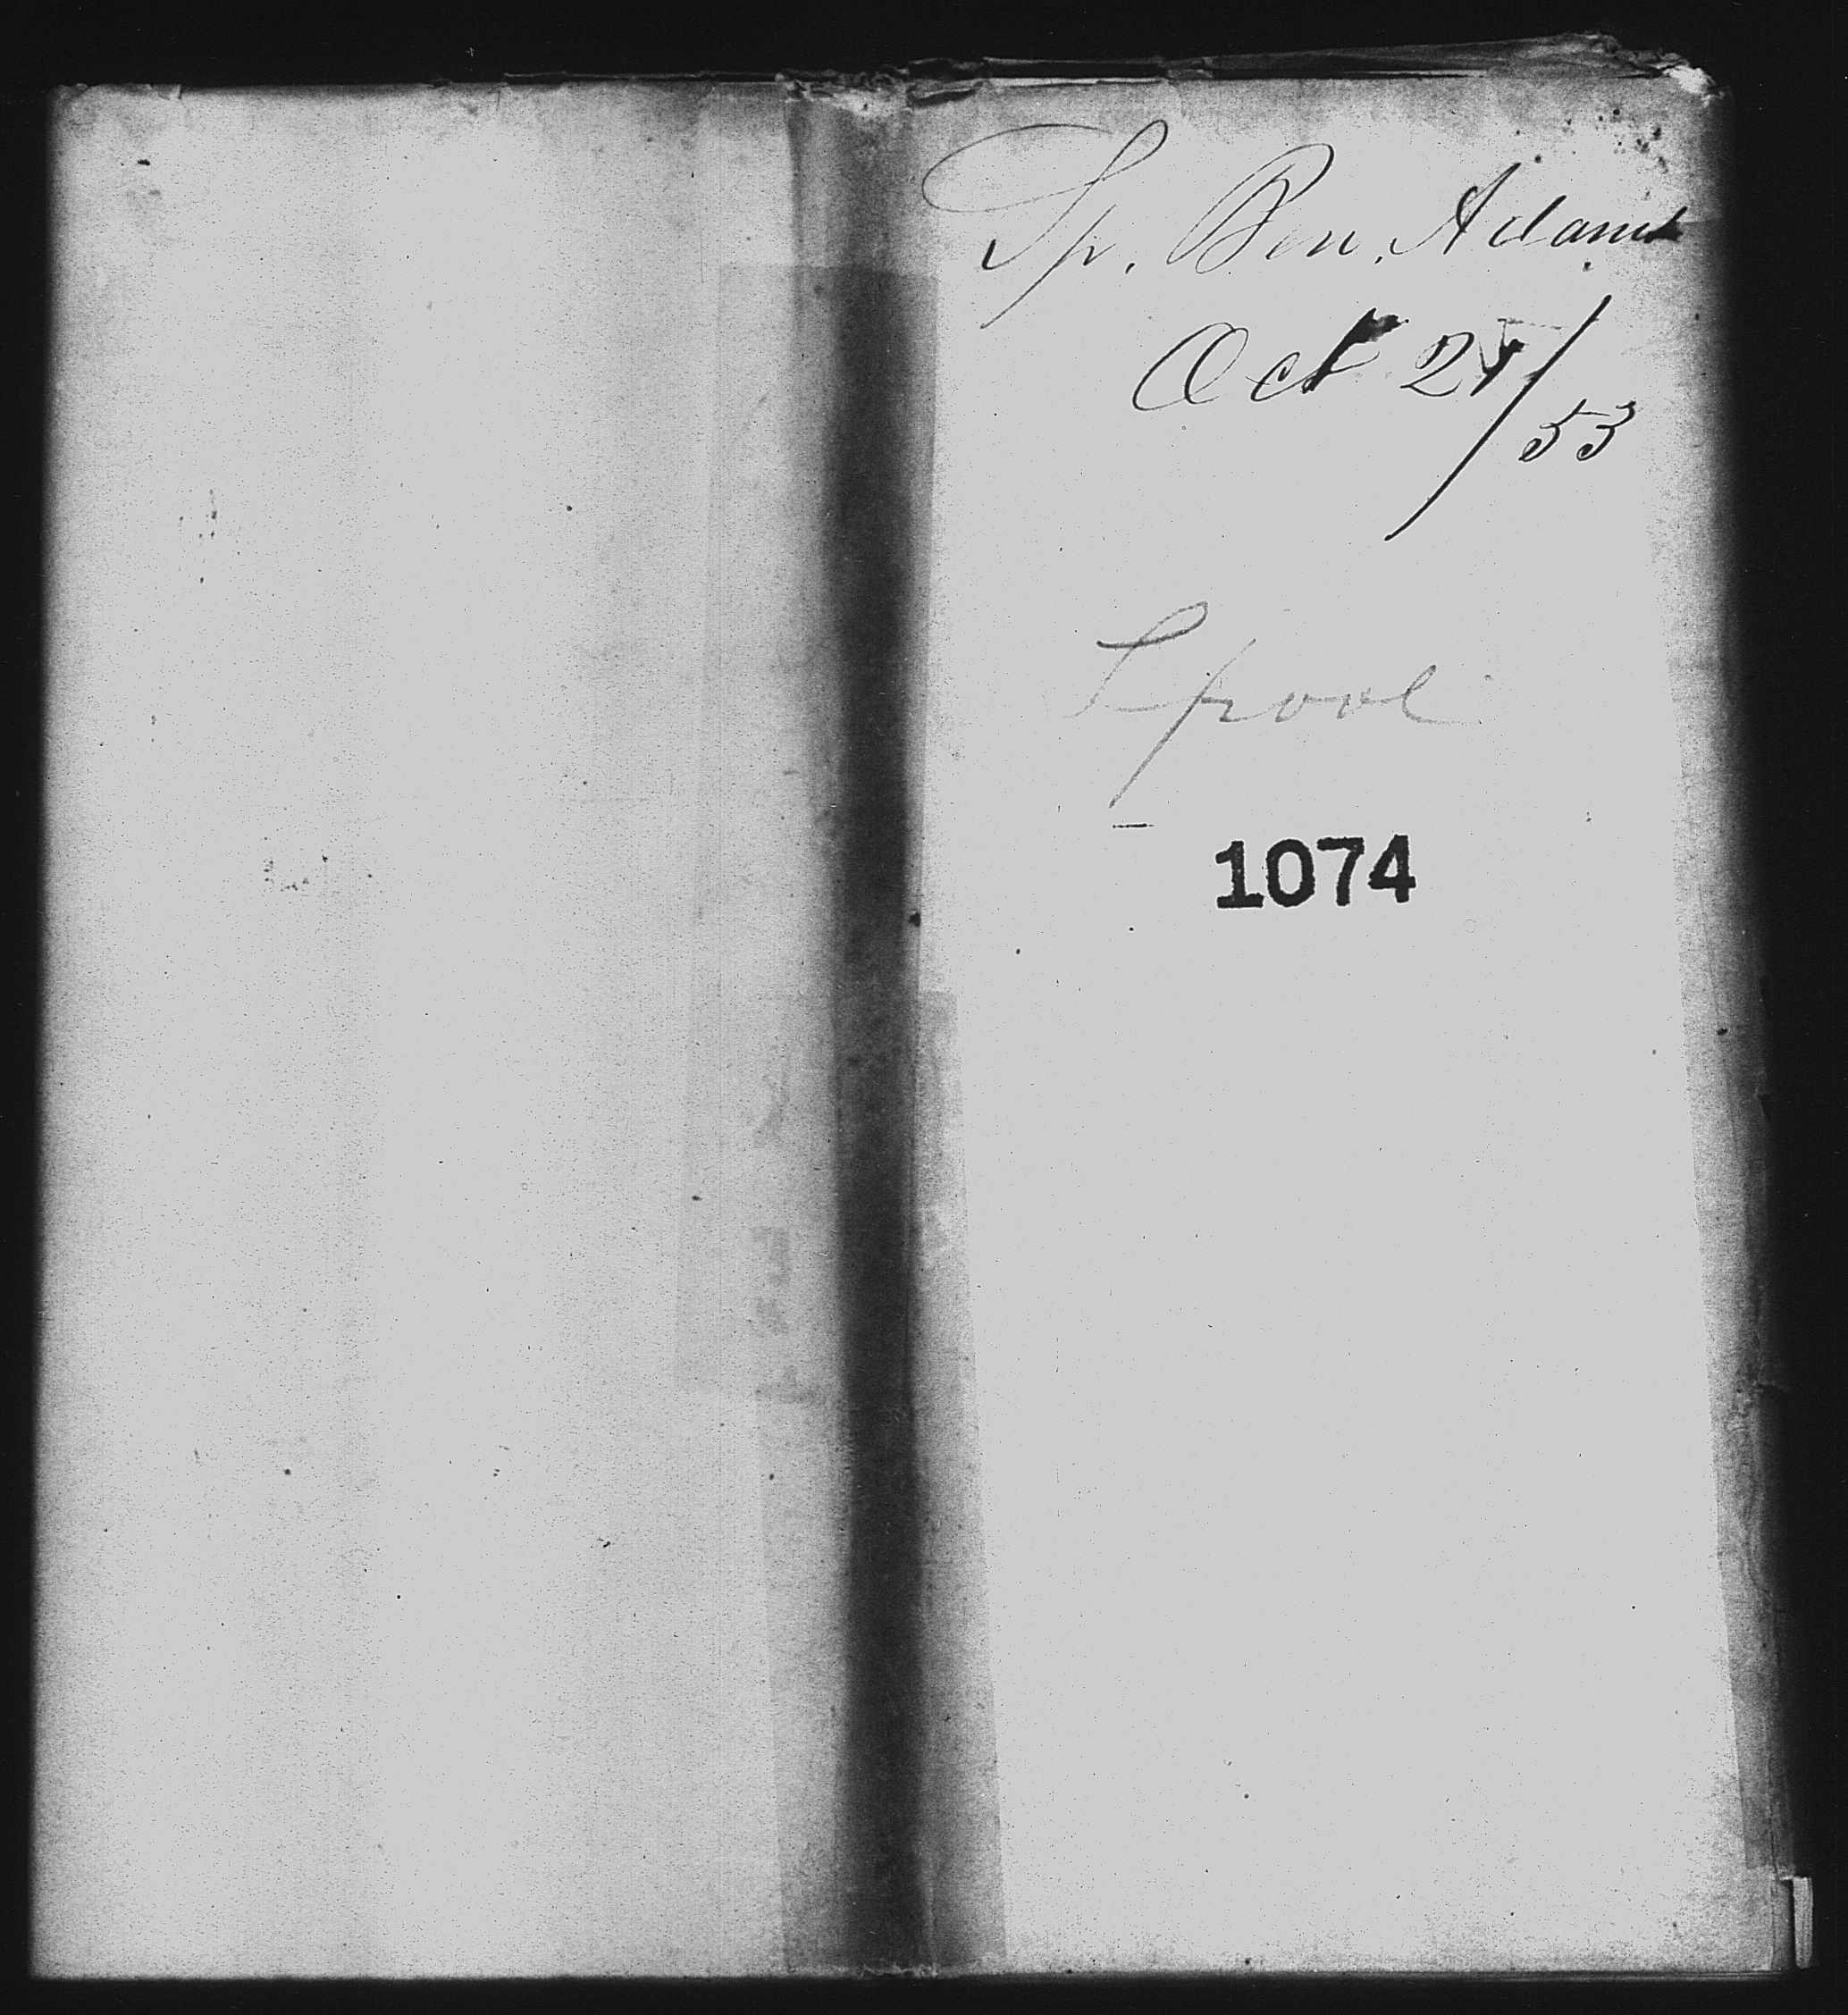 Sp. Ben. Adams
Oct 27/53
Lpool
1074